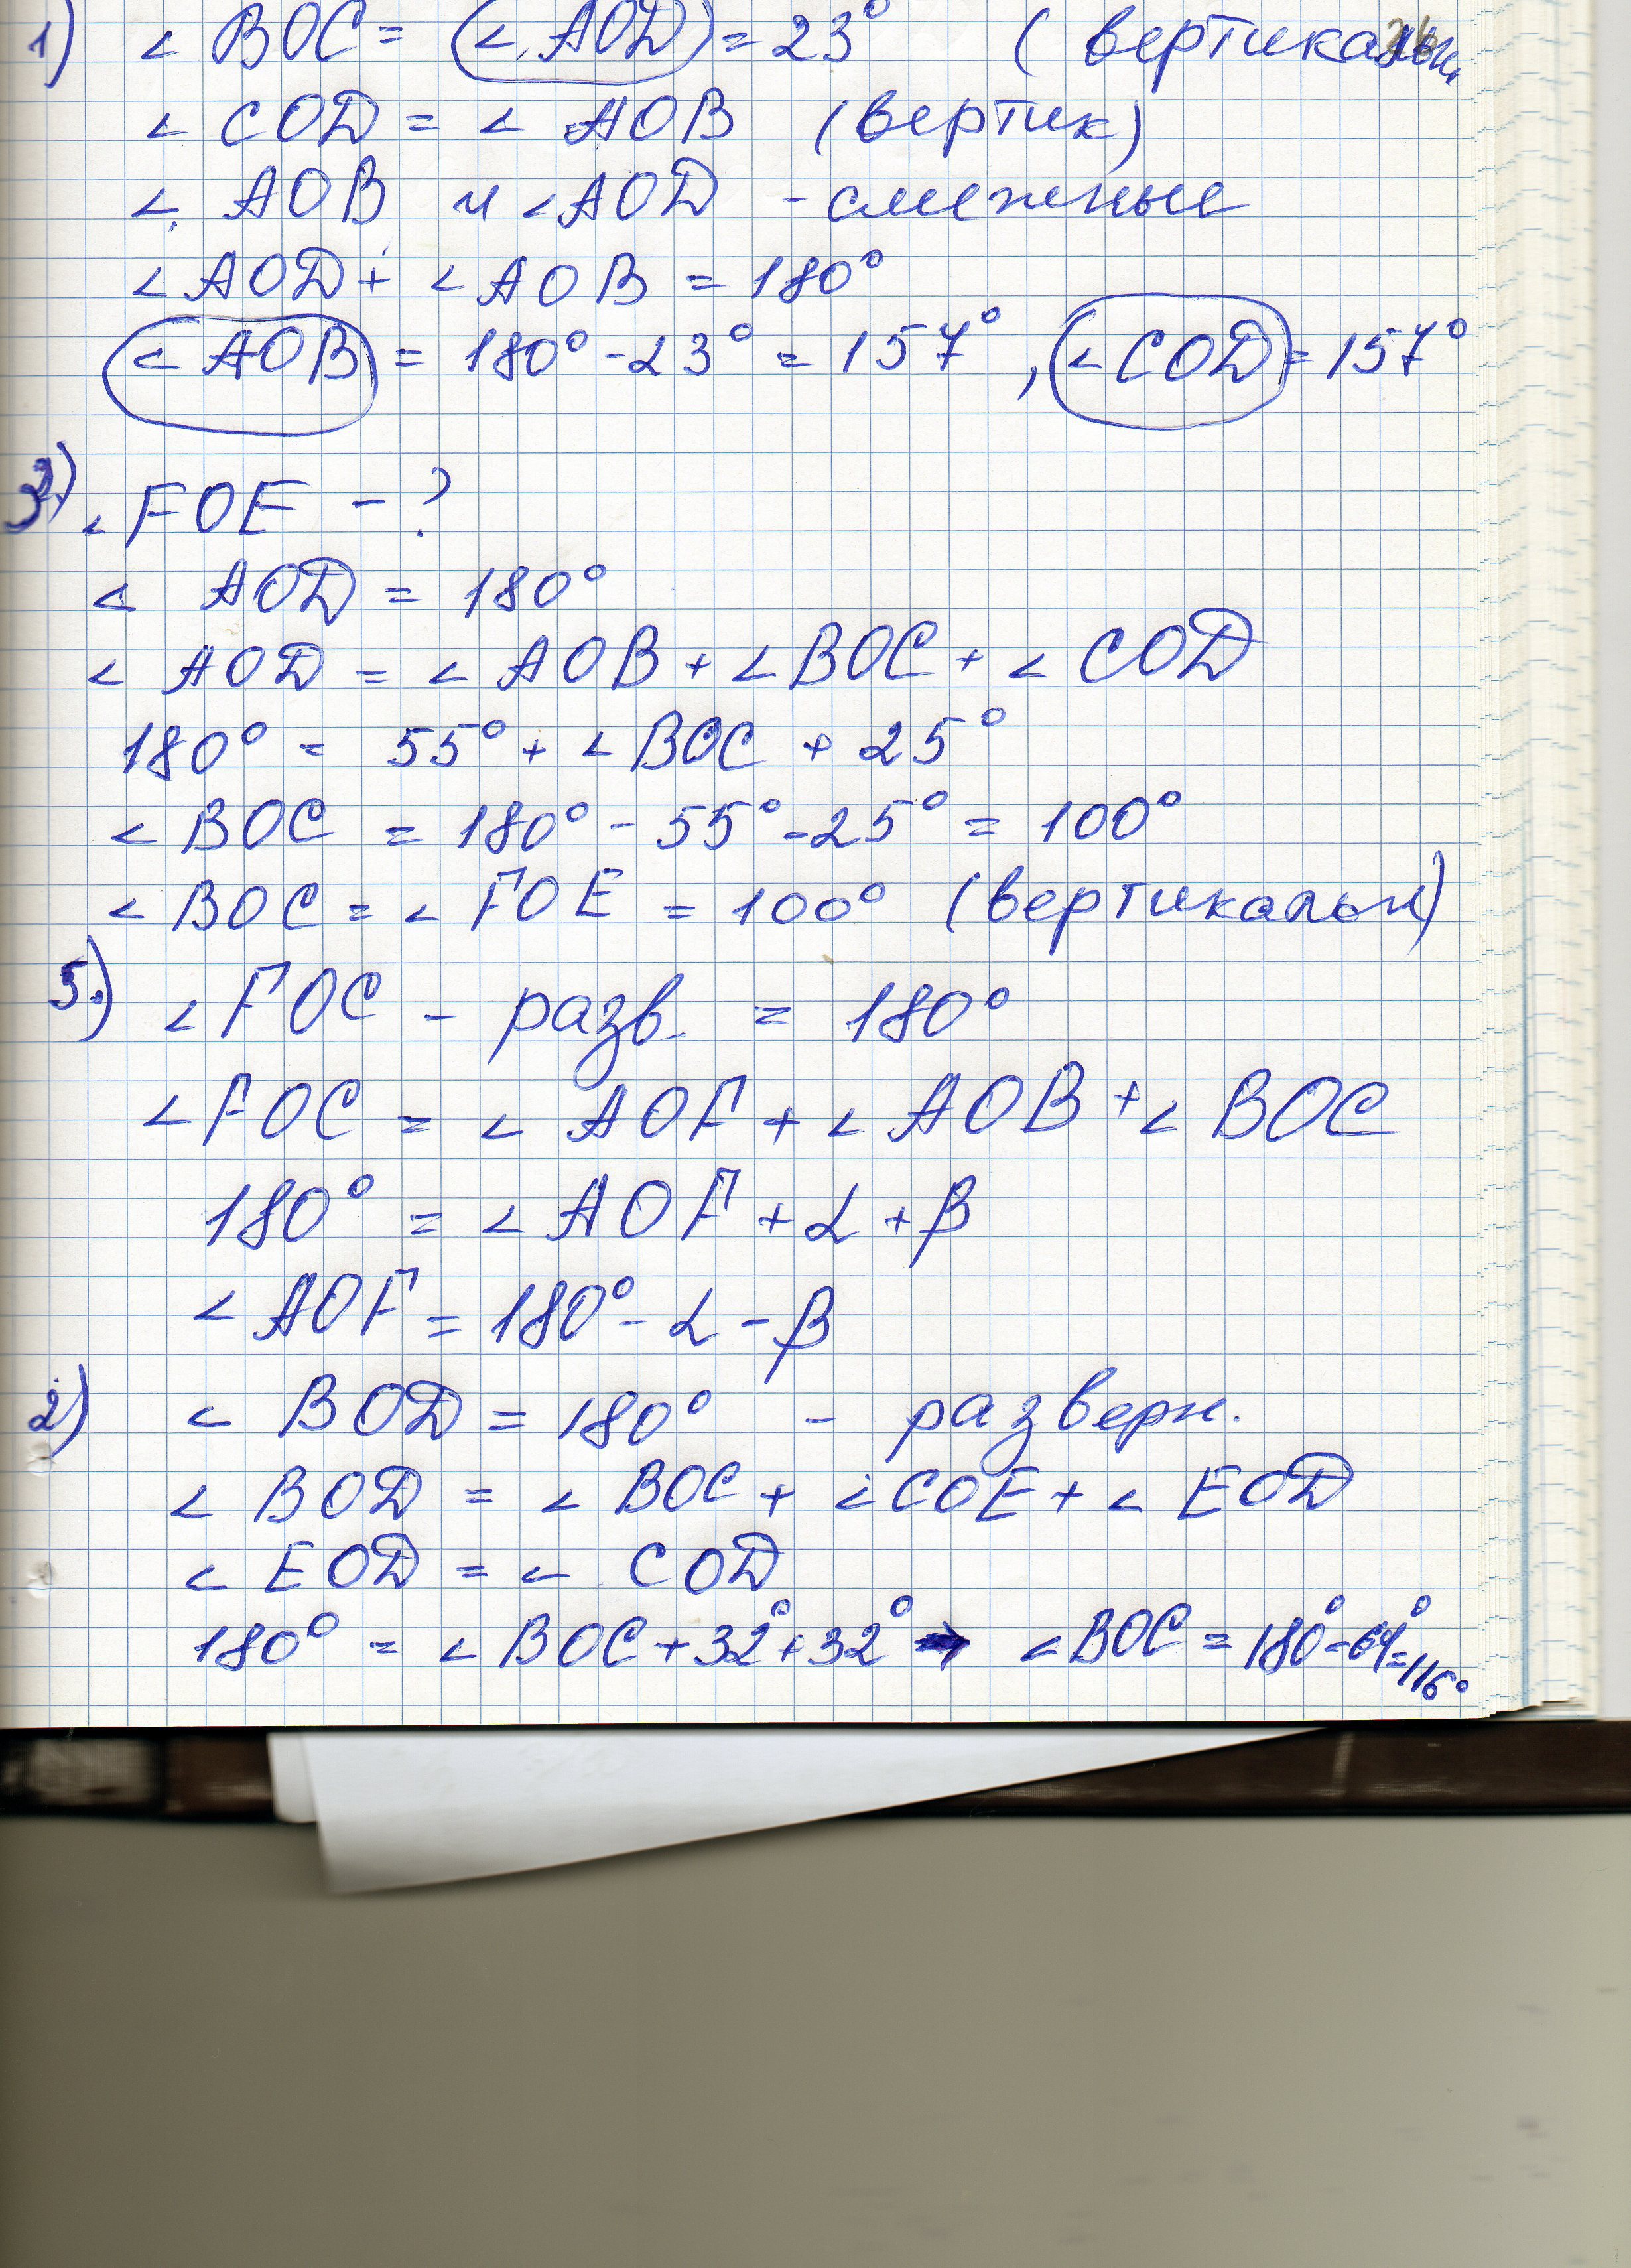 1) ∠ BOC = ∠ AOD = 23° (вертикальн
∠ COD = ∠ AOB (вертик)
∠ AOB и ∠AOD - смежные
∠AOD + ∠AOB = 180°
∠AOB = 180° - 23° = 157°, ∠COD = 157°
3.) ∠FOE - ?
∠ AOD = 180°
∠ AOD = ∠ AOB + ∠BOC + ∠ COD
180° = 55° + ∠BOC + 25°
∠BOC = 180° - 55° - 25° = 100°
∠BOC = ∠ FOE = 100° (вертикальн)
5.) ∠FOC - разв. = 180°
∠FOC = ∠ AOF + ∠ AOB + ∠ BOC
180° = ∠ AOF + α + β
∠AOF = 180° - α - β
2) ∠ BOD = 180° - разверн.
∠ BOD = ∠ BOC + ∠COE + ∠ EOD
∠ EOD = ∠ COD
180° = ∠BOC + 32° + 32° → ∠BOC = 180° - 64° = 116°